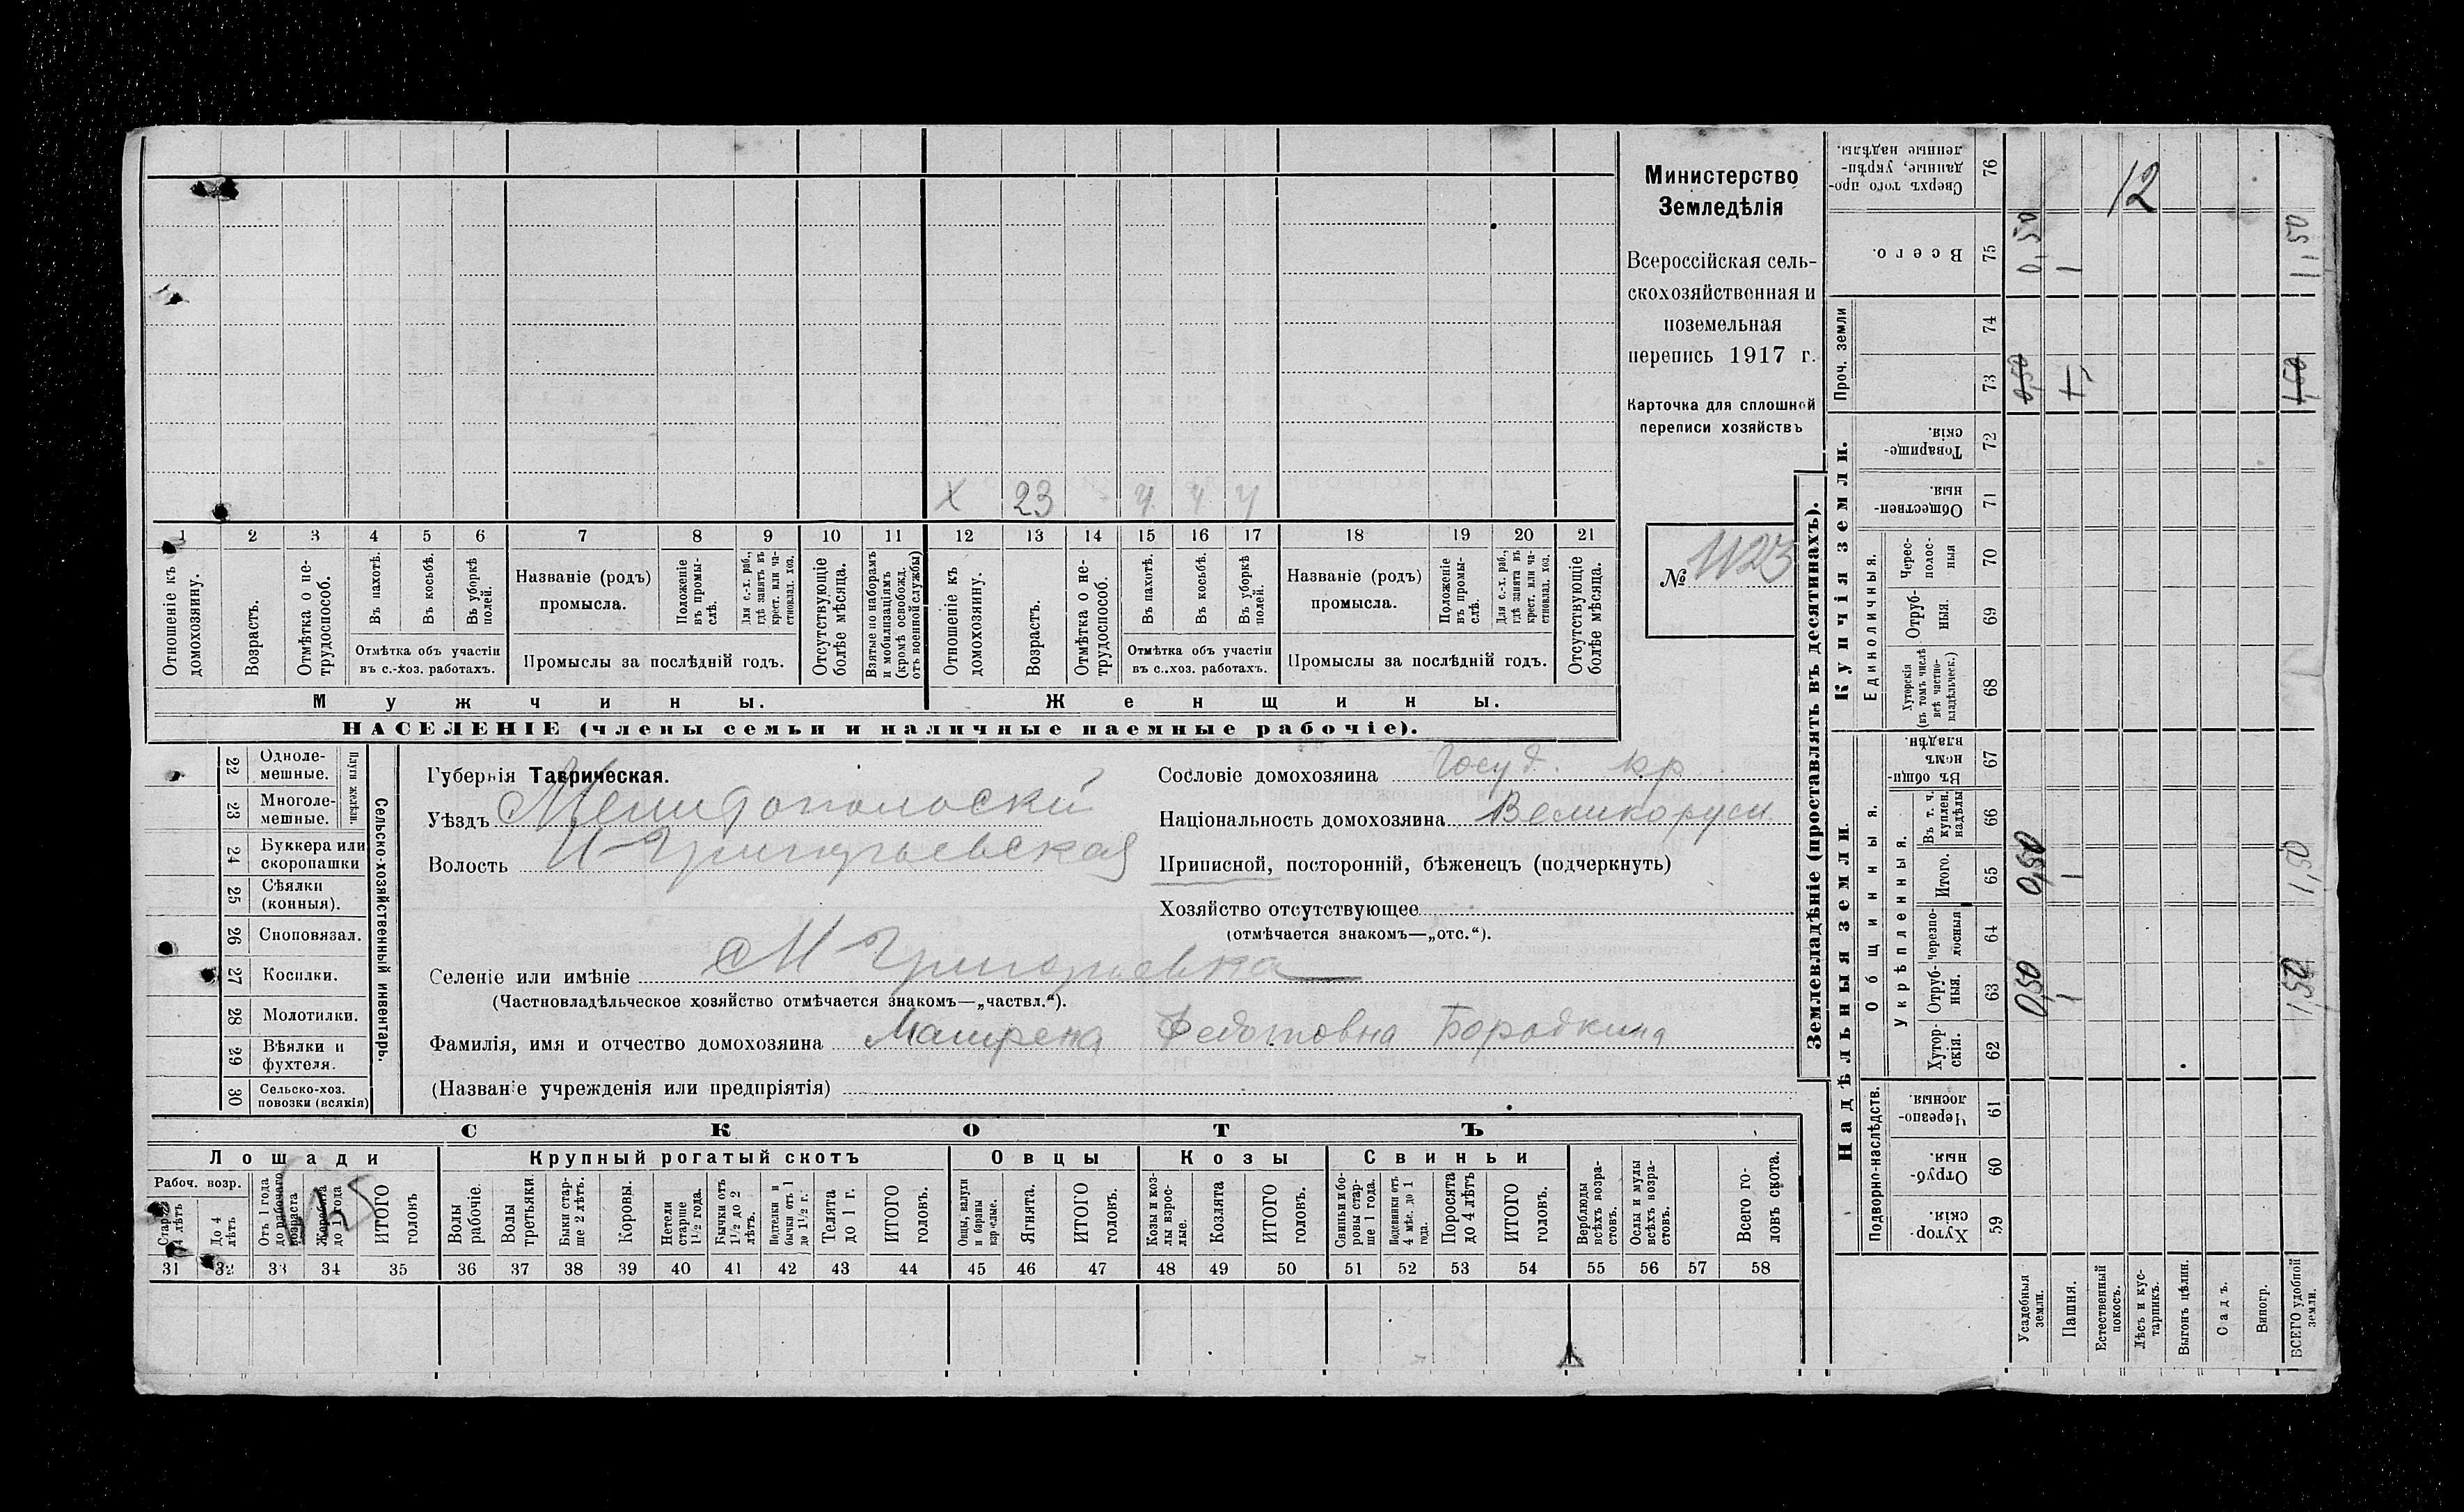 Министерство
Земледѣлія
Всероссійская сель-
скохозяйственная и
поземельная
перепись 1917 г.
Карточка для сплошной
переписи хозяйствъ
№ 1123
х 23 ч ч ч
1 2 3 4 5 6 7 8 9 10 11 12 13 14 15 16 17 18 19 20 21
Отношеніе къ домохозяину.
Возрастъ.
Отмѣтка о не-трудоспособ.
Въ пахотѣ.
Въ косьбѣ.
Въ уборкѣ полей.
Отмѣтка объ участіи
въ с.-хоз. работахъ.
Названіе (родъ)
промысла.
Положеніе въ промы-слѣ.
Для с.-х. раб., гдѣ занятъ въ крест. или ча-стновлад. хоз.
Промыслы за послѣдній годъ.
Отсутствующіе болѣе мѣсяца.
Взятые по наборамъ и мобилизаціямъ (кромѣ освобожд. отъ военной службы)
Отношеніе къ домохозяину.
Возрастъ.
Отмѣтка о не-трудоспособ.
Въ пахотѣ.
Въ косьбѣ.
Въ уборкѣ полей.
Отмѣтка объ участіи
въ с.-хоз. работахъ.
Названіе (родъ)
промысла.
Положеніе въ промы-слѣ.
Для с.-х. раб., гдѣ занята въ крест. или ча-стновлад. хоз.
Промыслы за послѣдній годъ.
Отсутствующіе болѣе мѣсяца.
Мужчины. Женщины.
НАСЕЛЕНІЕ (члены семьи и наличные наемные рабочіе).
22 Одноле-мешные.
23 Многоле-мешные.
Плуги желѣзн.
24 Буккера или скоропашки
25 Сѣялки (конныя).
26 Сноповязал.
27 Косилки.
28 Молотилки.
29 Вѣялки и фухтеля.
30 Сельско-хоз. повозки (всякія)
Сельско-хозяйственный инвентарь.
Губернія Таврическая.
Уѣздъ Мелитопольскій
Волость М-Григорьевская
Селеніе или имѣніе М Григорьевка
(Частновладѣльческое хозяйство отмѣчается знакомъ—„частвл.“).
Фамилія, имя и отчество домохозяина Матрена Федотовна Бородкина
(Названіе учрежденія или предпріятія)
Сословіе домохозяина Госуд. кр
Національность домохозяина Великорусы
Приписной, посторонній, бѣженецъ (подчеркнуть)
Хозяйство отсутствующее
(отмѣчается знакомъ—„отс.“).
СКОТЪ
Лошади Крупный рогатый скотъ Овцы Козы Свиньи
Рабоч. возр.
Старше 4 лѣтъ
До 4 лѣтъ
Отъ 1 года до рабочаго возраста
Жеребята до 1 года
ИТОГО головъ
Волы рабочіе.
Волы третьяки.
Быки стар-ше 2 лѣтъ.
Коровы.
Нетели старше 1½ года.
Бычки отъ 1½ до 2 лѣтъ.
Подтелки и бычки отъ 1 до 1½ г.
Телята до 1 г.
ИТОГО головъ.
Овцы, валухи и бараны взрослые.
Ягнята.
ИТОГО головъ.
Козы и коз-лы взрос-лые.
Козлята
ИТОГО головъ.
Свиньи и бо-ровы стар-ше 1 года.
Подсвинки отъ 4 мѣс. до 1 года.
Поросята до 4 лѣтъ
ИТОГО головъ.
Верблюды всѣхъ возра-стовъ.
Ослы и мулы всѣхъ возра-стовъ.
Всего го-ловъ скота.
31 32 33 34 35 36 37 38 39 40 41 42 43 44 45 46 47 48 49 50 51 52 53 54 55 56 57 58
Землевладѣніе (проставлять въ десятинахъ).
Купчія земли.
Надѣльныя земли.
Проч. земли
Единоличныя.
Общинныя.
Укрѣпленныя.
Подворно-наслѣдств.
Сверхъ того про-данные, укрѣп-ленные надѣлы. 76 12
Всего. 75 0,50 1 1,50
74
73 0,50 1 1,50
Товарище-скія. 72
Обществен-ныя. 71
Черес-полос-ныя 70
Отруб-ныя. 69
Хуторскія (въ томъ числѣ всѣ частно-владѣльческ.) 68
Въ общи-номъ владѣн. 67
Въ т. ч. куплен. надѣлы 66
Итого. 65 0,50 1 1,50
Черезпо-лосныя 64
Отруб-ныя. 63 0,50 1 1,50
Хутор-скія. 62
Черезпо-лосныя 61
Отруб-ныя. 60
Хутор-скія. 59
Усадебныя земли.
Пашня.
Естественный покосъ.
Лѣсъ и кус-тарникъ.
Выгонъ цѣлин.
Садъ.
Виногр.
ВСЕГО удобной земли.